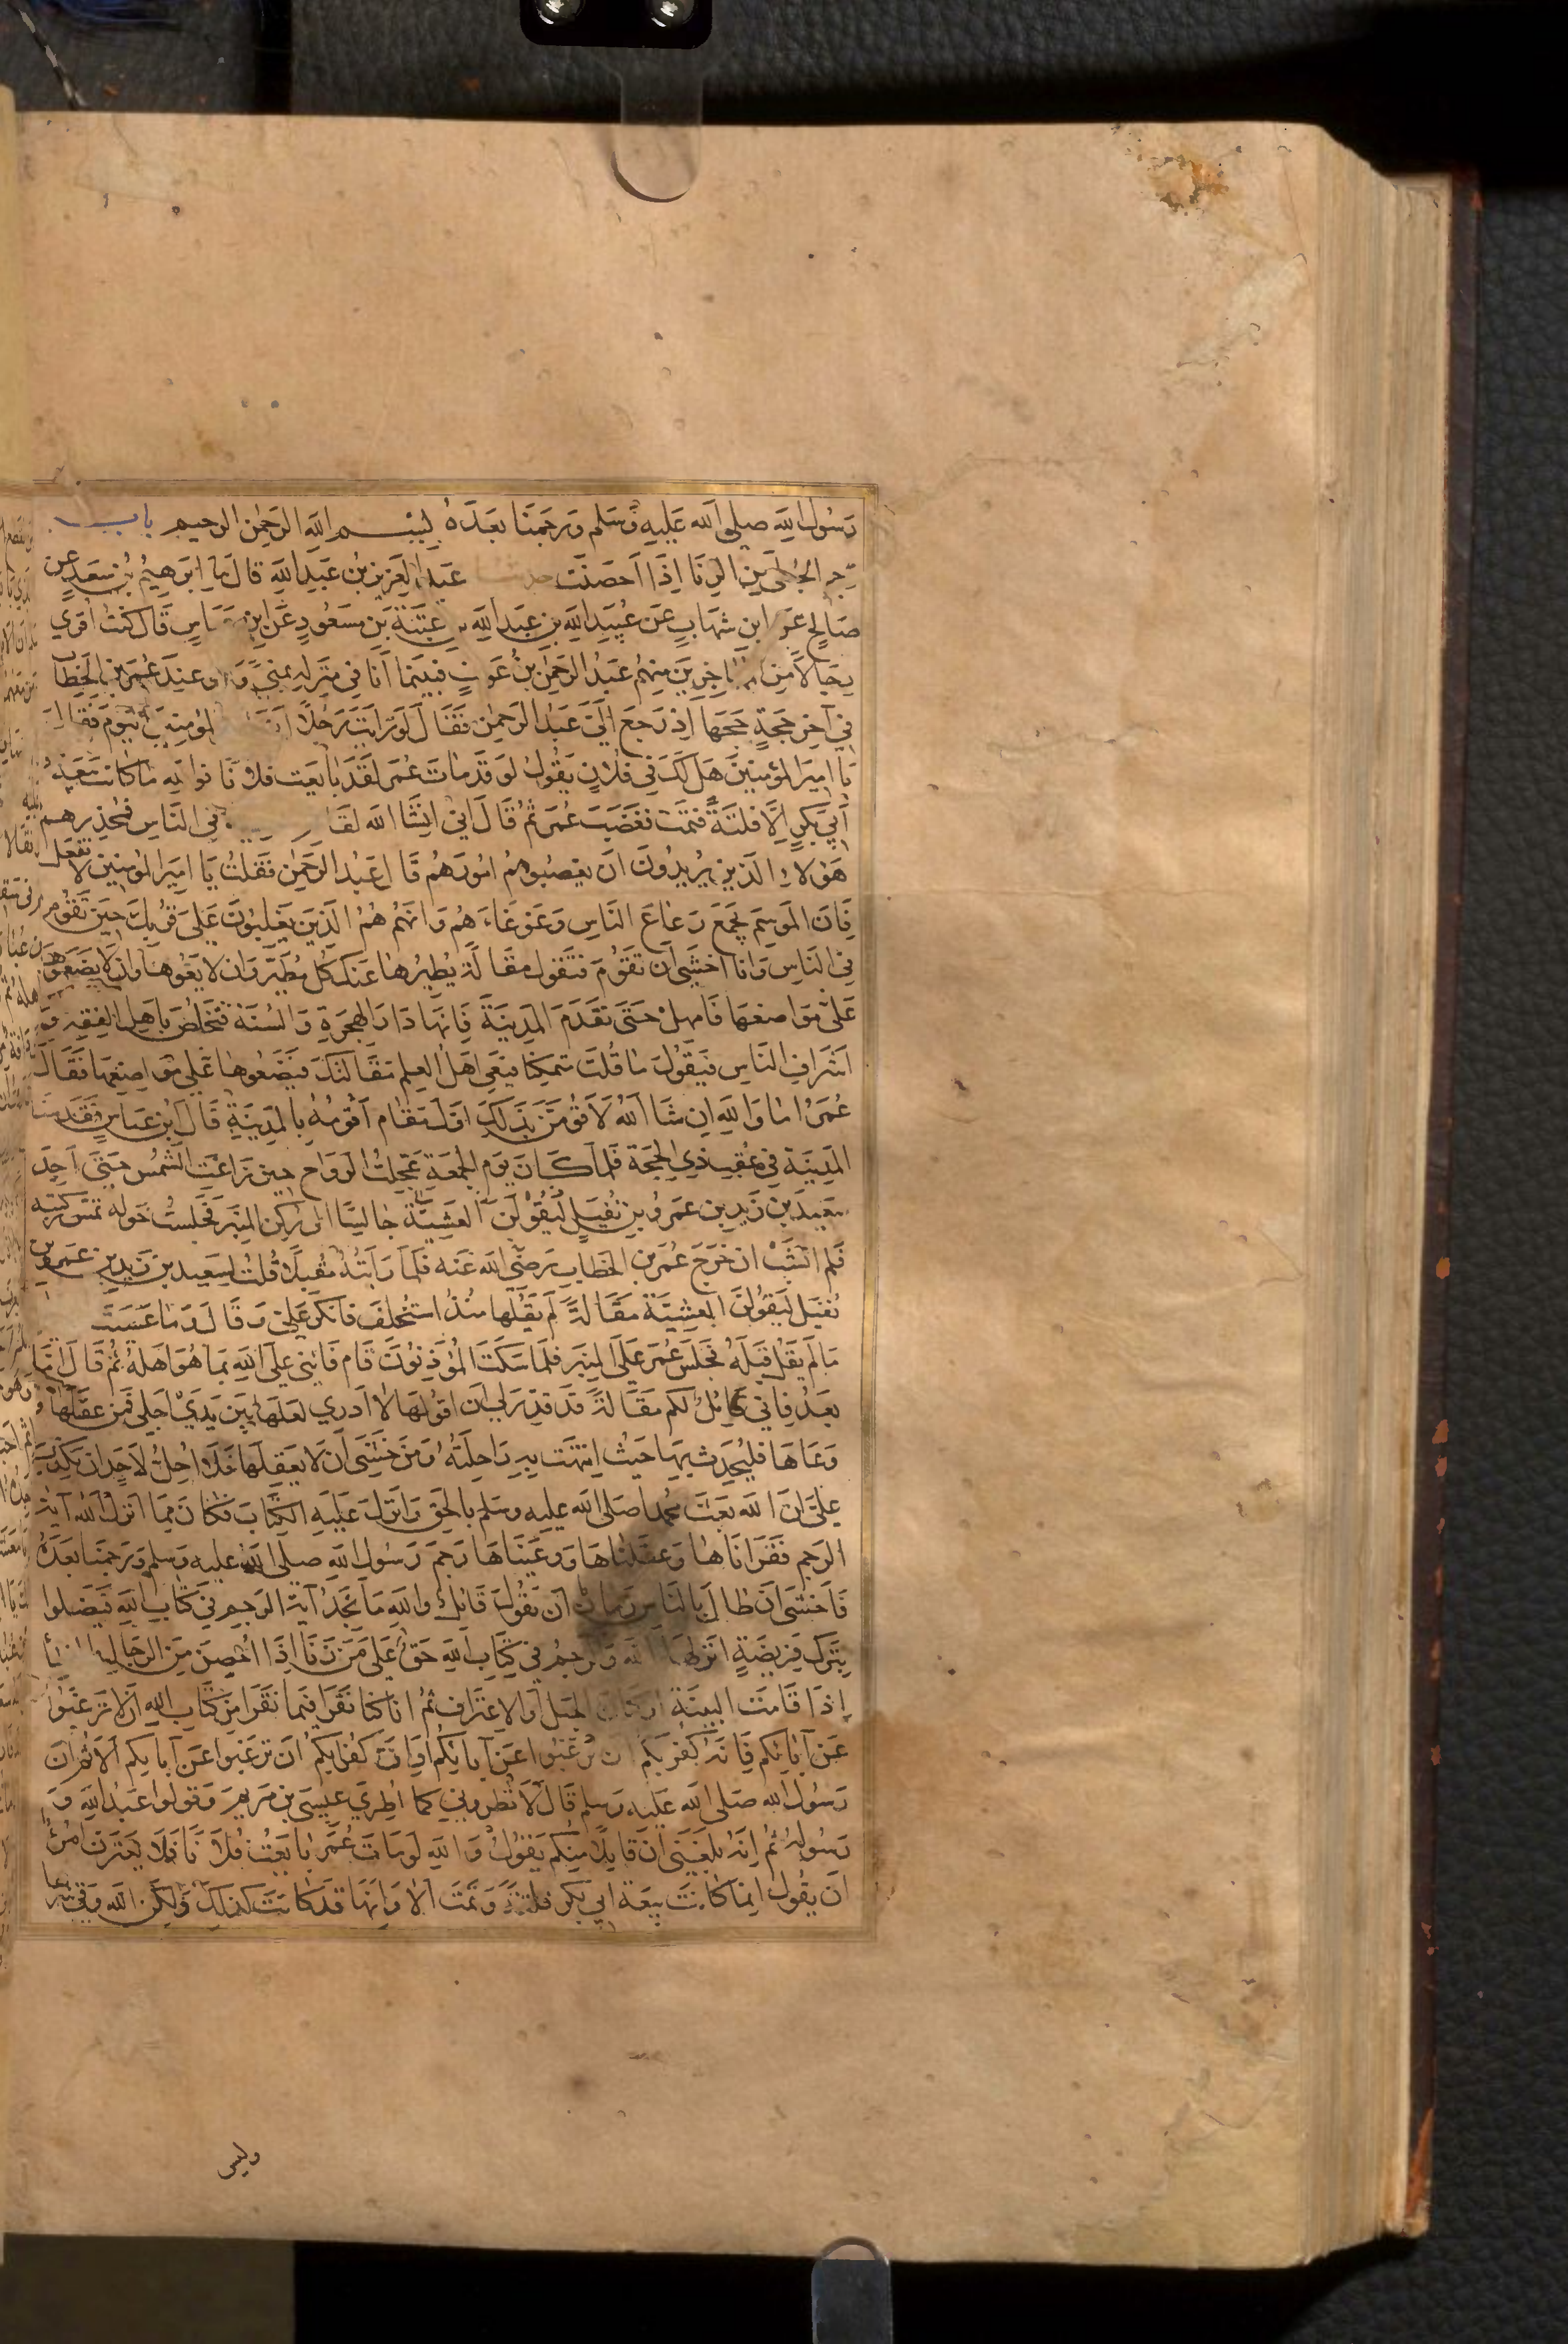 رسول الله صلى الله عليه وسلم ورجمنا بعده بسم الله الرحمن الرحيم باب
رجم الحبلى من الزنا اذا احصنت حدثنا عبد العزيز بن عبد الله قال ابرهيم بن سعد عن
صالح عن ابن شهاب عن عبيد الله بن عبد الله بن عتبة بن مسعود عن ابن عباس قال كنت اقرى
رجالا من المهاجرين منهم عبد الرحمن بن عوف فبينما انا في منزله بمنى وهو عند عمر بن الخطاب
في آخر حجة حجها اذ رجع الي عبد الرحمن فقال لو رايت رجلا المومنين اليوم فقال
يا امير المؤمنين هل لك في فلان يقول لو قد مات عمر لقد بايعت فلانا فوالله ما كانت بيعة
أبي بكر الا فلتة فتمت فغضب عمر ثم قال اني ان شا الله في الناس فمحذرهم
هولاء الذين يريدون ان يغصبوهم امورهم قال عبد الرحمن فقلت يا امير المومنين لا تفعل
فان الموسم يجمع رعاع الناس وغوغاءهم وانهم هم الذين يغلبون على قربك حين تقوم
في الناس وانا اخشى ان تقوم فتقول مقالة يطيرها عنك كل مطير وان لا يعوها وان لا يضعوها
على مواضعها فامهل حتى تقدم المدينة فانها دار الهجرة والسنة فتخلص باهل الفقه و
اشراف الناس فيقول ما قلت متمكنا فيعي اهل العلم مقالتك فيضعوها على مواضعها فقال
عمر اما والله ان شا الله لاقومن بذلك اول مقام اقومه بالمدينة قال ابن عباس فقدمنا
المدينة في عقب ذي الحجة فلما كان يوم الجمعة عجلت الرواح حين زاغت الشمس حتى اجد
سعيد بن زيد بن عمرو بن نفيل ليقولن العشية جالسا الى ركن المنبر فجلست حوله تمس ركبته
فلم انشب ان خرج عمر بن الخطاب رضي الله عنه فلما رايته مقبلا قلت لسعيد بن زيد بن عمرو بن
نفيل ليقولن العشية مقالة لم يقلها منذ استخلف فانكر علي وقال ما عسيت
ما لم يقل قبله فجلس عمر على المنبر فلما سكت المؤذنون قام فاثنى على الله بما هو اهله ثم قال اما
بعد فاني قائل لكم مقالة قد قدر لي ان اقولها لا ادري لعلها بين يدي اجلي فمن عقلها و
وعاها فليحدث بها حيث انتهت به راحلته ومن خشي ان لا يعقلها فلا احل لاحد ان يكذب
علي ان الله بعث محمدا صلى الله عليه وسلم بالحق وانزل عليه الكتاب فكان مما انزل الله آية
الرجم فقراناها وعقلناها ووعيناها رجم رسول الله صلى الله عليه وسلم ورجمنا بعده
فاخشى ان طال بالناس زمان ان يقول قائل والله ما نجد آية الرجم في كتاب الله فيضلوا
بترك فريضة انزلها الله والرجم في كتاب الله حق على من زنا اذا احصن من الرجال
إذا قامت البينة او كان الحبل او الاعتراف ثم انا كنا نقرا فيما نقرا من كتاب الله ان لا ترغبوا
عن آبائكم فانه كفر بكم ان ترغبوا عن آبائكم او ان كفرا بكم ان ترغبوا عن آبايكم ألا ثم ان
رسول الله صلى الله عليه وسلم قال لا تطروني كما اطري عيسى بن مريم وقولوا عبد الله و
رسوله ثم انه بلغني ان قايلا منكم يقول والله لو مات عمر بايعت فلانا فلا يغترن امرؤ
ان يقول انما كانت بيعة ابي بكر فلتة وتمت الا وانها قد كانت كذلك ولكن الله وقى شرها
وليس